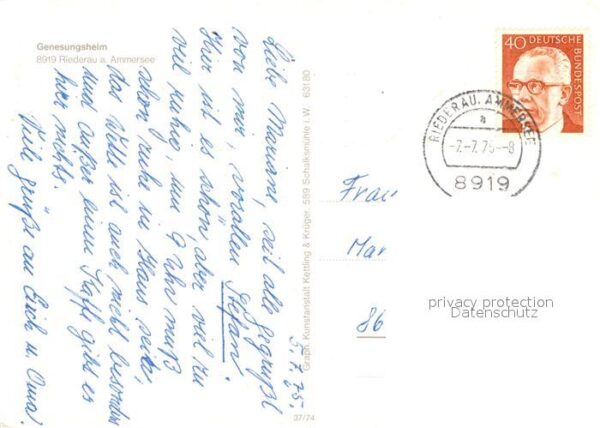 Genesungsheim
8919 Riederau a. Ammersee
5.7.75.
Liebe Mariane, seid alle gegrüßt
von mir, vorallem Stefan.
Hier ist es schön, aber viel zu
viel ruhig, um 9 Uhr muß
schon ruhe in Haus sein,
das Wetter ist auch nicht besonders
und außer einem Kaffe gibt es
hier nichts.
Viele grüße an Erich u. Oma!
Graph. Kunstanstalt Kettling & Krüger, 589 Schalksmühle i.W. 63180
37/74
40 DEUTSCHE BUNDESPOST
RIEDERAU, AMMERSEE
a
-7.-7.75--8
8919
Frau
Mar
86
privacy protection
Datenschutz